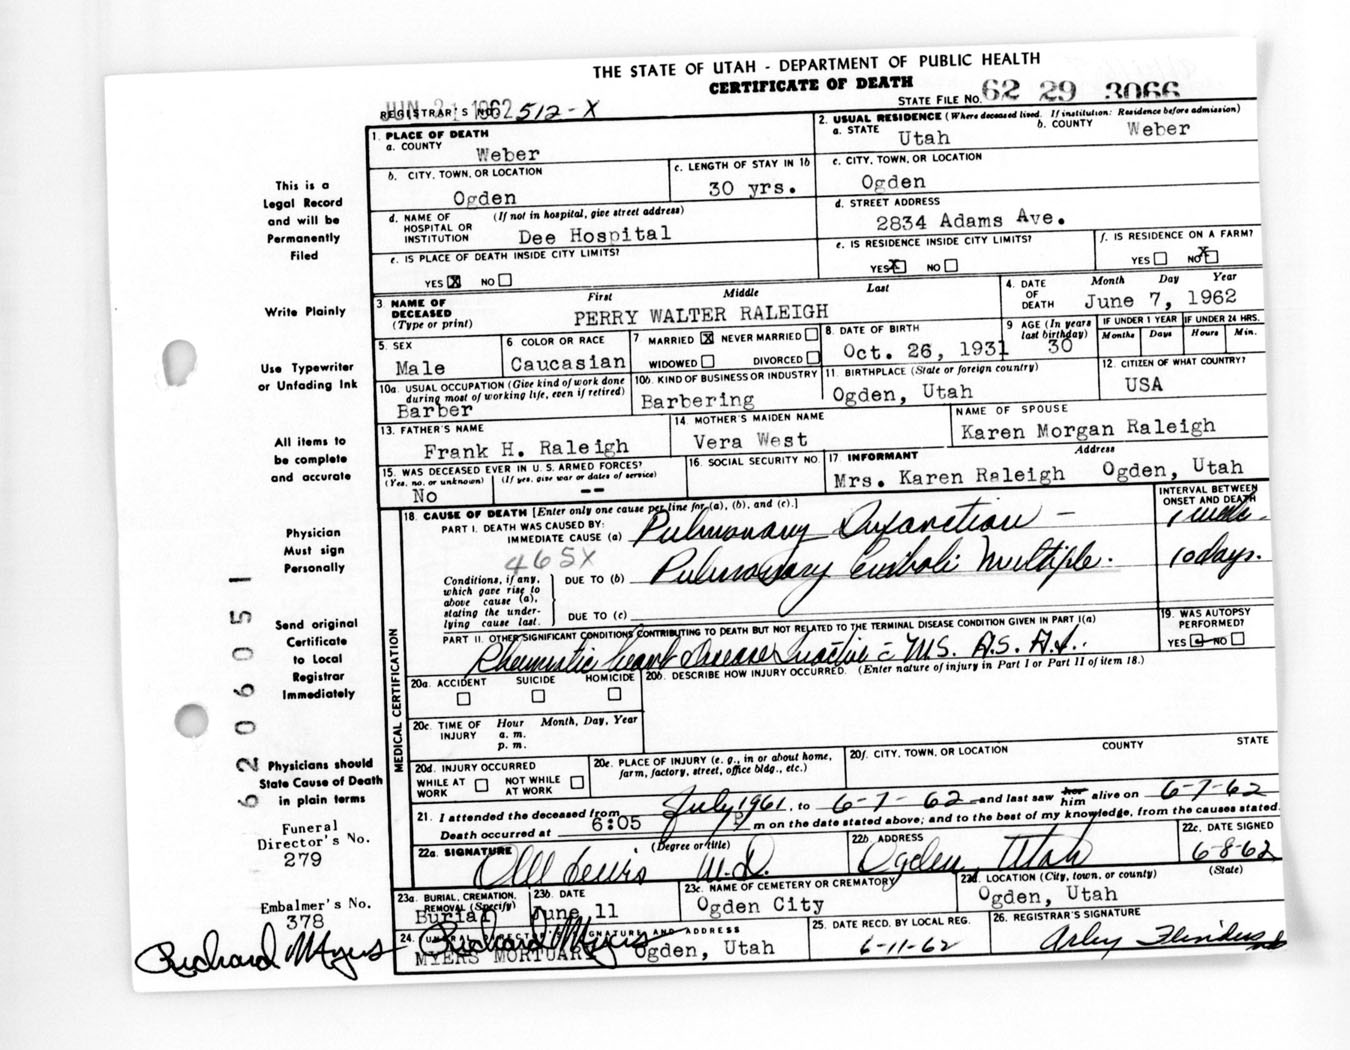 THE STATE OF UTAH - DEPARTMENT OF PUBLIC HEALTH
CERTIFICATE OF DEATH
JUN 21 1962
REGISTRAR'S NO. 512-X
STATE FILE NO. 62 29 3066
1. PLACE OF DEATH
a. COUNTY
Weber
2. USUAL RESIDENCE (Where deceased lived. If institution: Residence before admission)
a. STATE
Utah
b. COUNTY
Weber
b. CITY, TOWN, OR LOCATION
Ogden
c. LENGTH OF STAY IN 1b
30 yrs.
c. CITY, TOWN, OR LOCATION
Ogden
d. NAME OF HOSPITAL OR INSTITUTION
(If not in hospital, give street address)
Dee Hospital
d. STREET ADDRESS
2834 Adams Ave.
e. IS PLACE OF DEATH INSIDE CITY LIMITS?
YES X NO
e. IS RESIDENCE INSIDE CITY LIMITS?
YES X NO
f. IS RESIDENCE ON A FARM?
YES NO X
3. NAME OF DECEASED
(Type or print)
First Middle Last
PERRY WALTER RALEIGH
4. DATE OF DEATH
Month Day Year
June 7, 1962
5. SEX
Male
6 COLOR OR RACE
Caucasian
7 MARRIED X NEVER MARRIED
WIDOWED DIVORCED
8. DATE OF BIRTH
Oct. 26, 1931
9 AGE (In years last birthday)
30
IF UNDER 1 YEAR
Months Days
IF UNDER 24 HRS.
Hours Min.
10a. USUAL OCCUPATION (Give kind of work done during most of working life, even if retired)
Barber
10b. KIND OF BUSINESS OR INDUSTRY
Barbering
11. BIRTHPLACE (State or foreign country)
Ogden, Utah
12. CITIZEN OF WHAT COUNTRY?
USA
13. FATHER'S NAME
Frank H. Raleigh
14. MOTHER'S MAIDEN NAME
Vera West
NAME OF SPOUSE
Karen Morgan Raleigh
15. WAS DECEASED EVER IN U. S. ARMED FORCES?
(Yes, no. or unknown) (If yes, give war or dates of service)
No --
16. SOCIAL SECURITY NO.
17. INFORMANT Address
Mrs. Karen Raleigh Ogden, Utah
18. CAUSE OF DEATH [Enter only one cause per line for (a), (b), and (c).]
INTERVAL BETWEEN ONSET AND DEATH
PART I. DEATH WAS CAUSED BY:
IMMEDIATE CAUSE (a) Pulmonary Infarction - 1 week.
465X
Conditions, if any, which gave rise to above cause (a), stating the underlying cause last.
DUE TO (b) Pulmonary Emboli Multiple. 10 days.
DUE TO (c)
PART II. OTHER SIGNIFICANT CONDITIONS CONTRIBUTING TO DEATH BUT NOT RELATED TO THE TERMINAL DISEASE CONDITION GIVEN IN PART I(a)
Rheumatic heart Disease Inactive M.S. A.S. A.I.
19. WAS AUTOPSY PERFORMED?
YES NO
20a. ACCIDENT SUICIDE HOMICIDE
20b. DESCRIBE HOW INJURY OCCURRED. (Enter nature of injury in Part I or Part II of item 18.)
20c. TIME OF INJURY
Hour Month, Day, Year
a. m.
p. m.
20d. INJURY OCCURRED
WHILE AT WORK NOT WHILE AT WORK
20e. PLACE OF INJURY (e. g., in or about home, farm, factory, street, office bldg., etc.)
20f. CITY, TOWN, OR LOCATION COUNTY STATE
21. I attended the deceased from July 1961, to 6-7-62 and last saw her him alive on 6-7-62
Death occurred at 6:05 P m on the date stated above; and to the best of my knowledge, from the causes stated.
22a. SIGNATURE (Degree or title)
M.D.
22b. ADDRESS
Ogden, Utah
22c. DATE SIGNED
6-8-62
23a. BURIAL, CREMATION, REMOVAL (Specify)
Burial
23b. DATE
June 11
23c. NAME OF CEMETERY OR CREMATORY
Ogden City
23d. LOCATION (City, town, or county) (State)
Ogden, Utah
24. FUNERAL DIRECTOR'S SIGNATURE AND ADDRESS
Richard Myers
MYERS MORTUARY Ogden, Utah
25. DATE RECD. BY LOCAL REG.
6-11-62
26. REGISTRAR'S SIGNATURE
MEDICAL CERTIFICATION
This is a
Legal Record
and will be
Permanently
Filed
Write Plainly
Use Typewriter
or Unfading Ink
All items to
be complete
and accurate
Physician
Must sign
Personally
Send original
Certificate
to Local
Registrar
Immediately
Physicians should
State Cause of Death
in plain terms
Funeral
Director's No.
279
Embalmer's No.
378
Richard Myers
62 06051